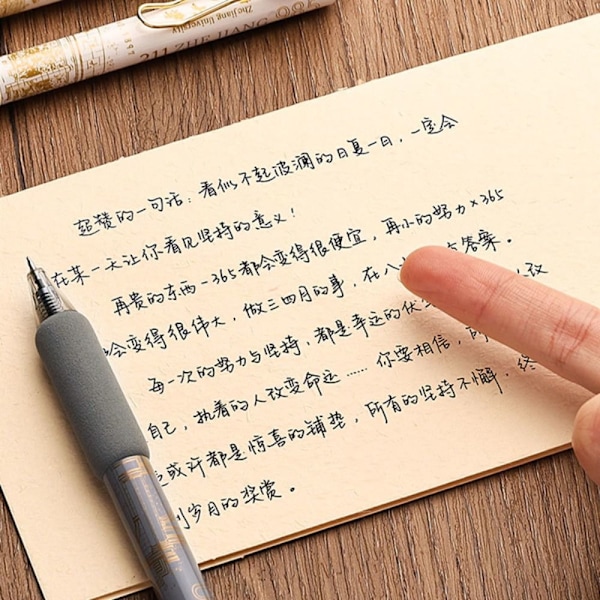 Zhejiang University
211 ZHE JIANG
1897
超赞的一句话：看似不起波澜的日复一日，一定会
在某一天让你看见坚持的意义！
再贵的东西-365都会变得很便宜，再小的努力×365
会变得很伟大，做三四月的事，在八 答案。
每一次的努力与坚持，都是幸运的伏 改
自己，执着的人改变命运……你要相信，所
或许都是惊喜的铺垫，所有的坚持不懈，终
到岁月的奖赏。